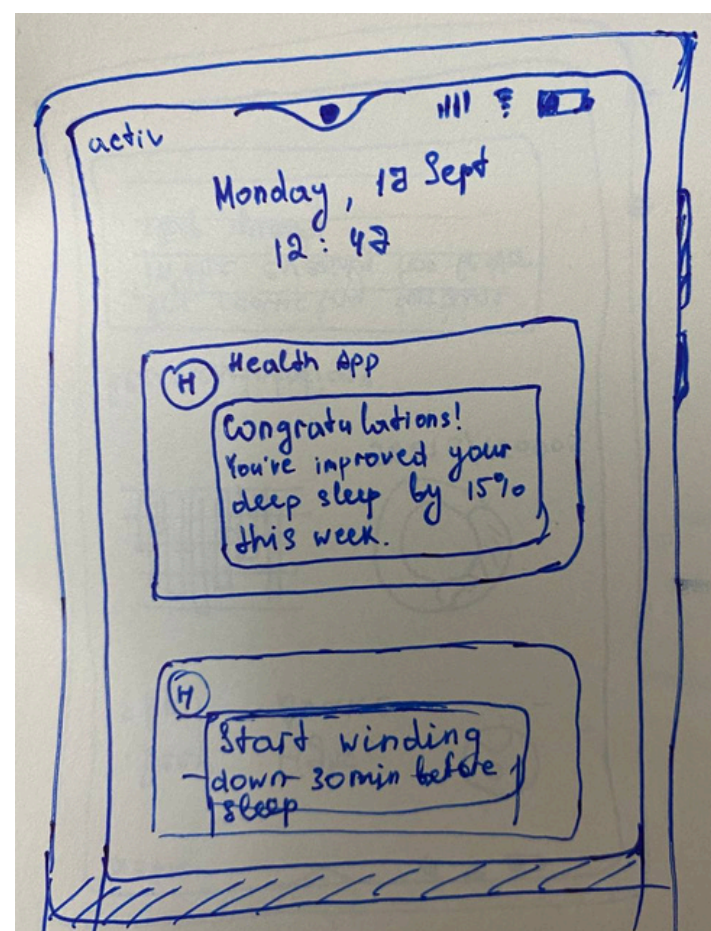 activ
Monday, 12 Sept
12:42
H
Health App
Congratulations!
You've improved your
deep sleep by 15%
this week.
H
Start winding
down 30min before
sleep